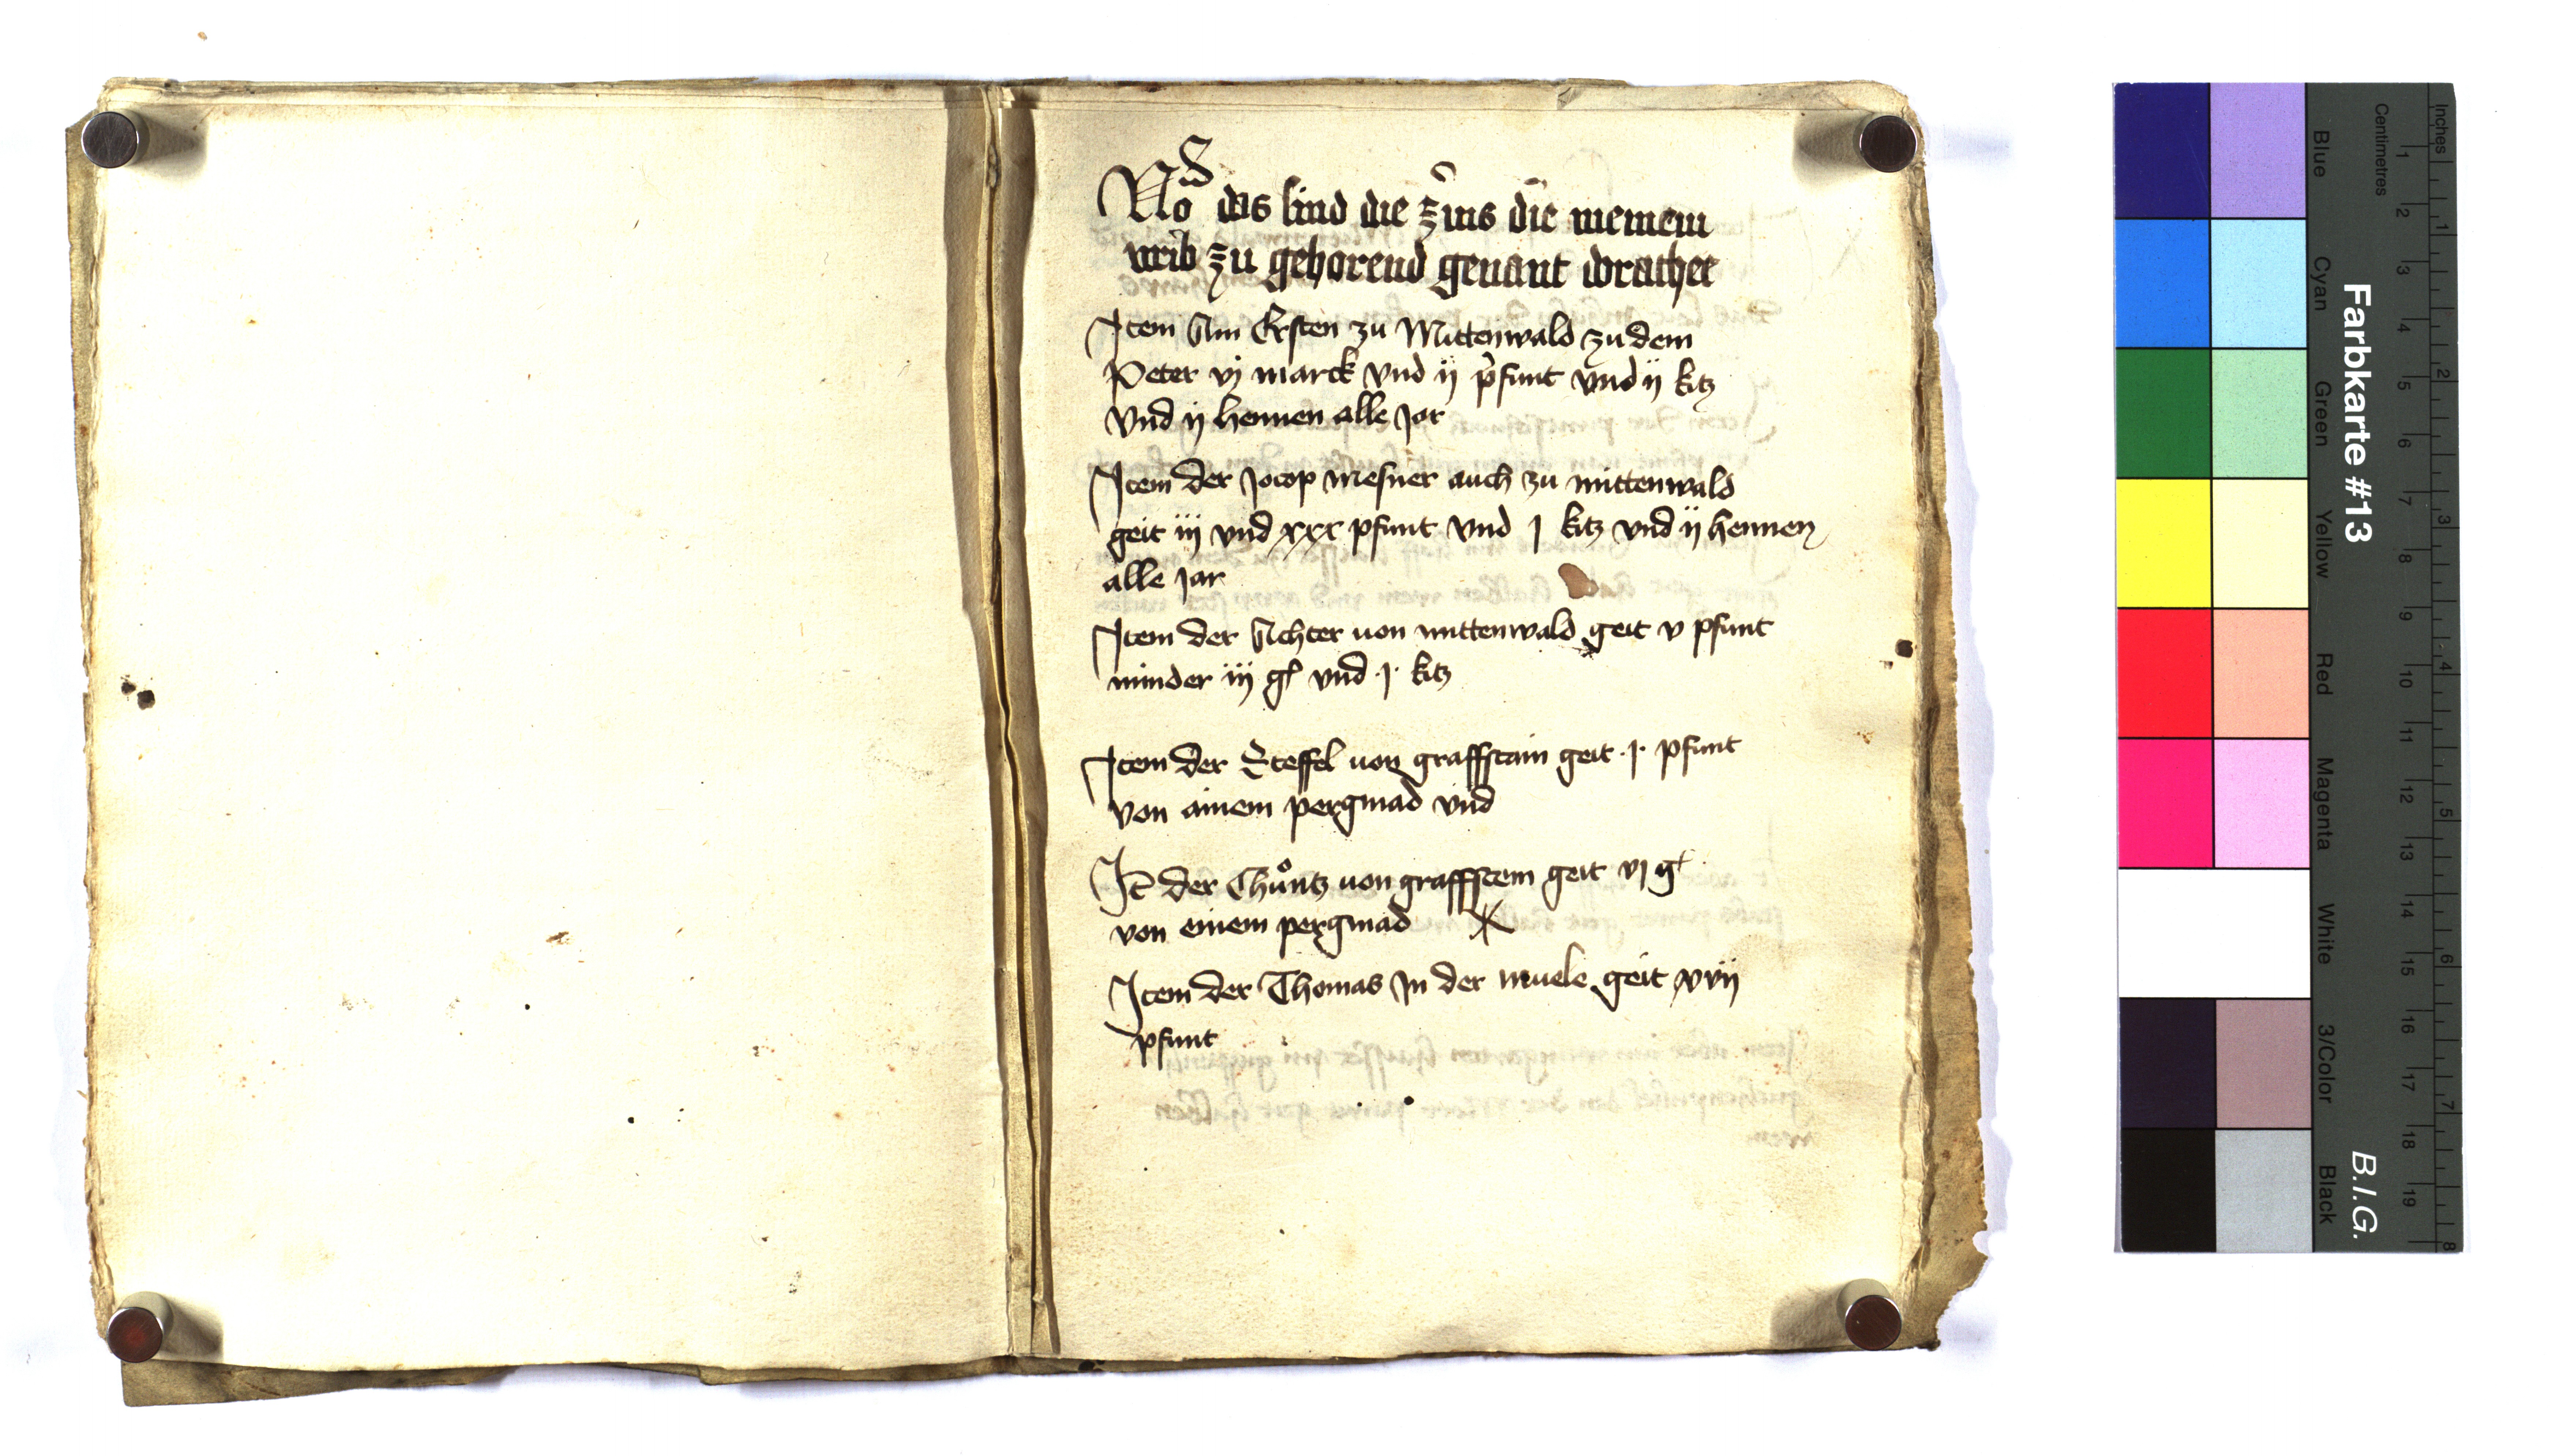 No das sind die zins die meinem
weib zu gehorend genant dorathee
Item Am Ersten zu Mittenwald zu dem
Peter vj marck vnd ij pfunt vnd ij kitz
vnd ij hennen alle Jar
Item der Jocop mesner auch zu mittenwald
geit iij vnd xxx pfunt vnd j kitz vnd ij hennen
alle jar
Item der Achter von mittenwald geit v pfunt
minder iij gl vnd ·j· kitz
Item der Steffel von graffstain geit ·j· pfunt
von ainem pergmad vnd
It der Chůntz von graffstein geit vj gl
von einem pergmad
Item der Thomas In der muele geit xvij
pfunt
Farbkarte #13
B.I.G.
Centimetres
Inches
Blue
Cyan
Green
Yellow
Red
Magenta
White
3/Color
Black
1 2 3 4 5 6 7 8 9 10 11 12 13 14 15 16 17 18 19
1 2 3 4 5 6 7 8